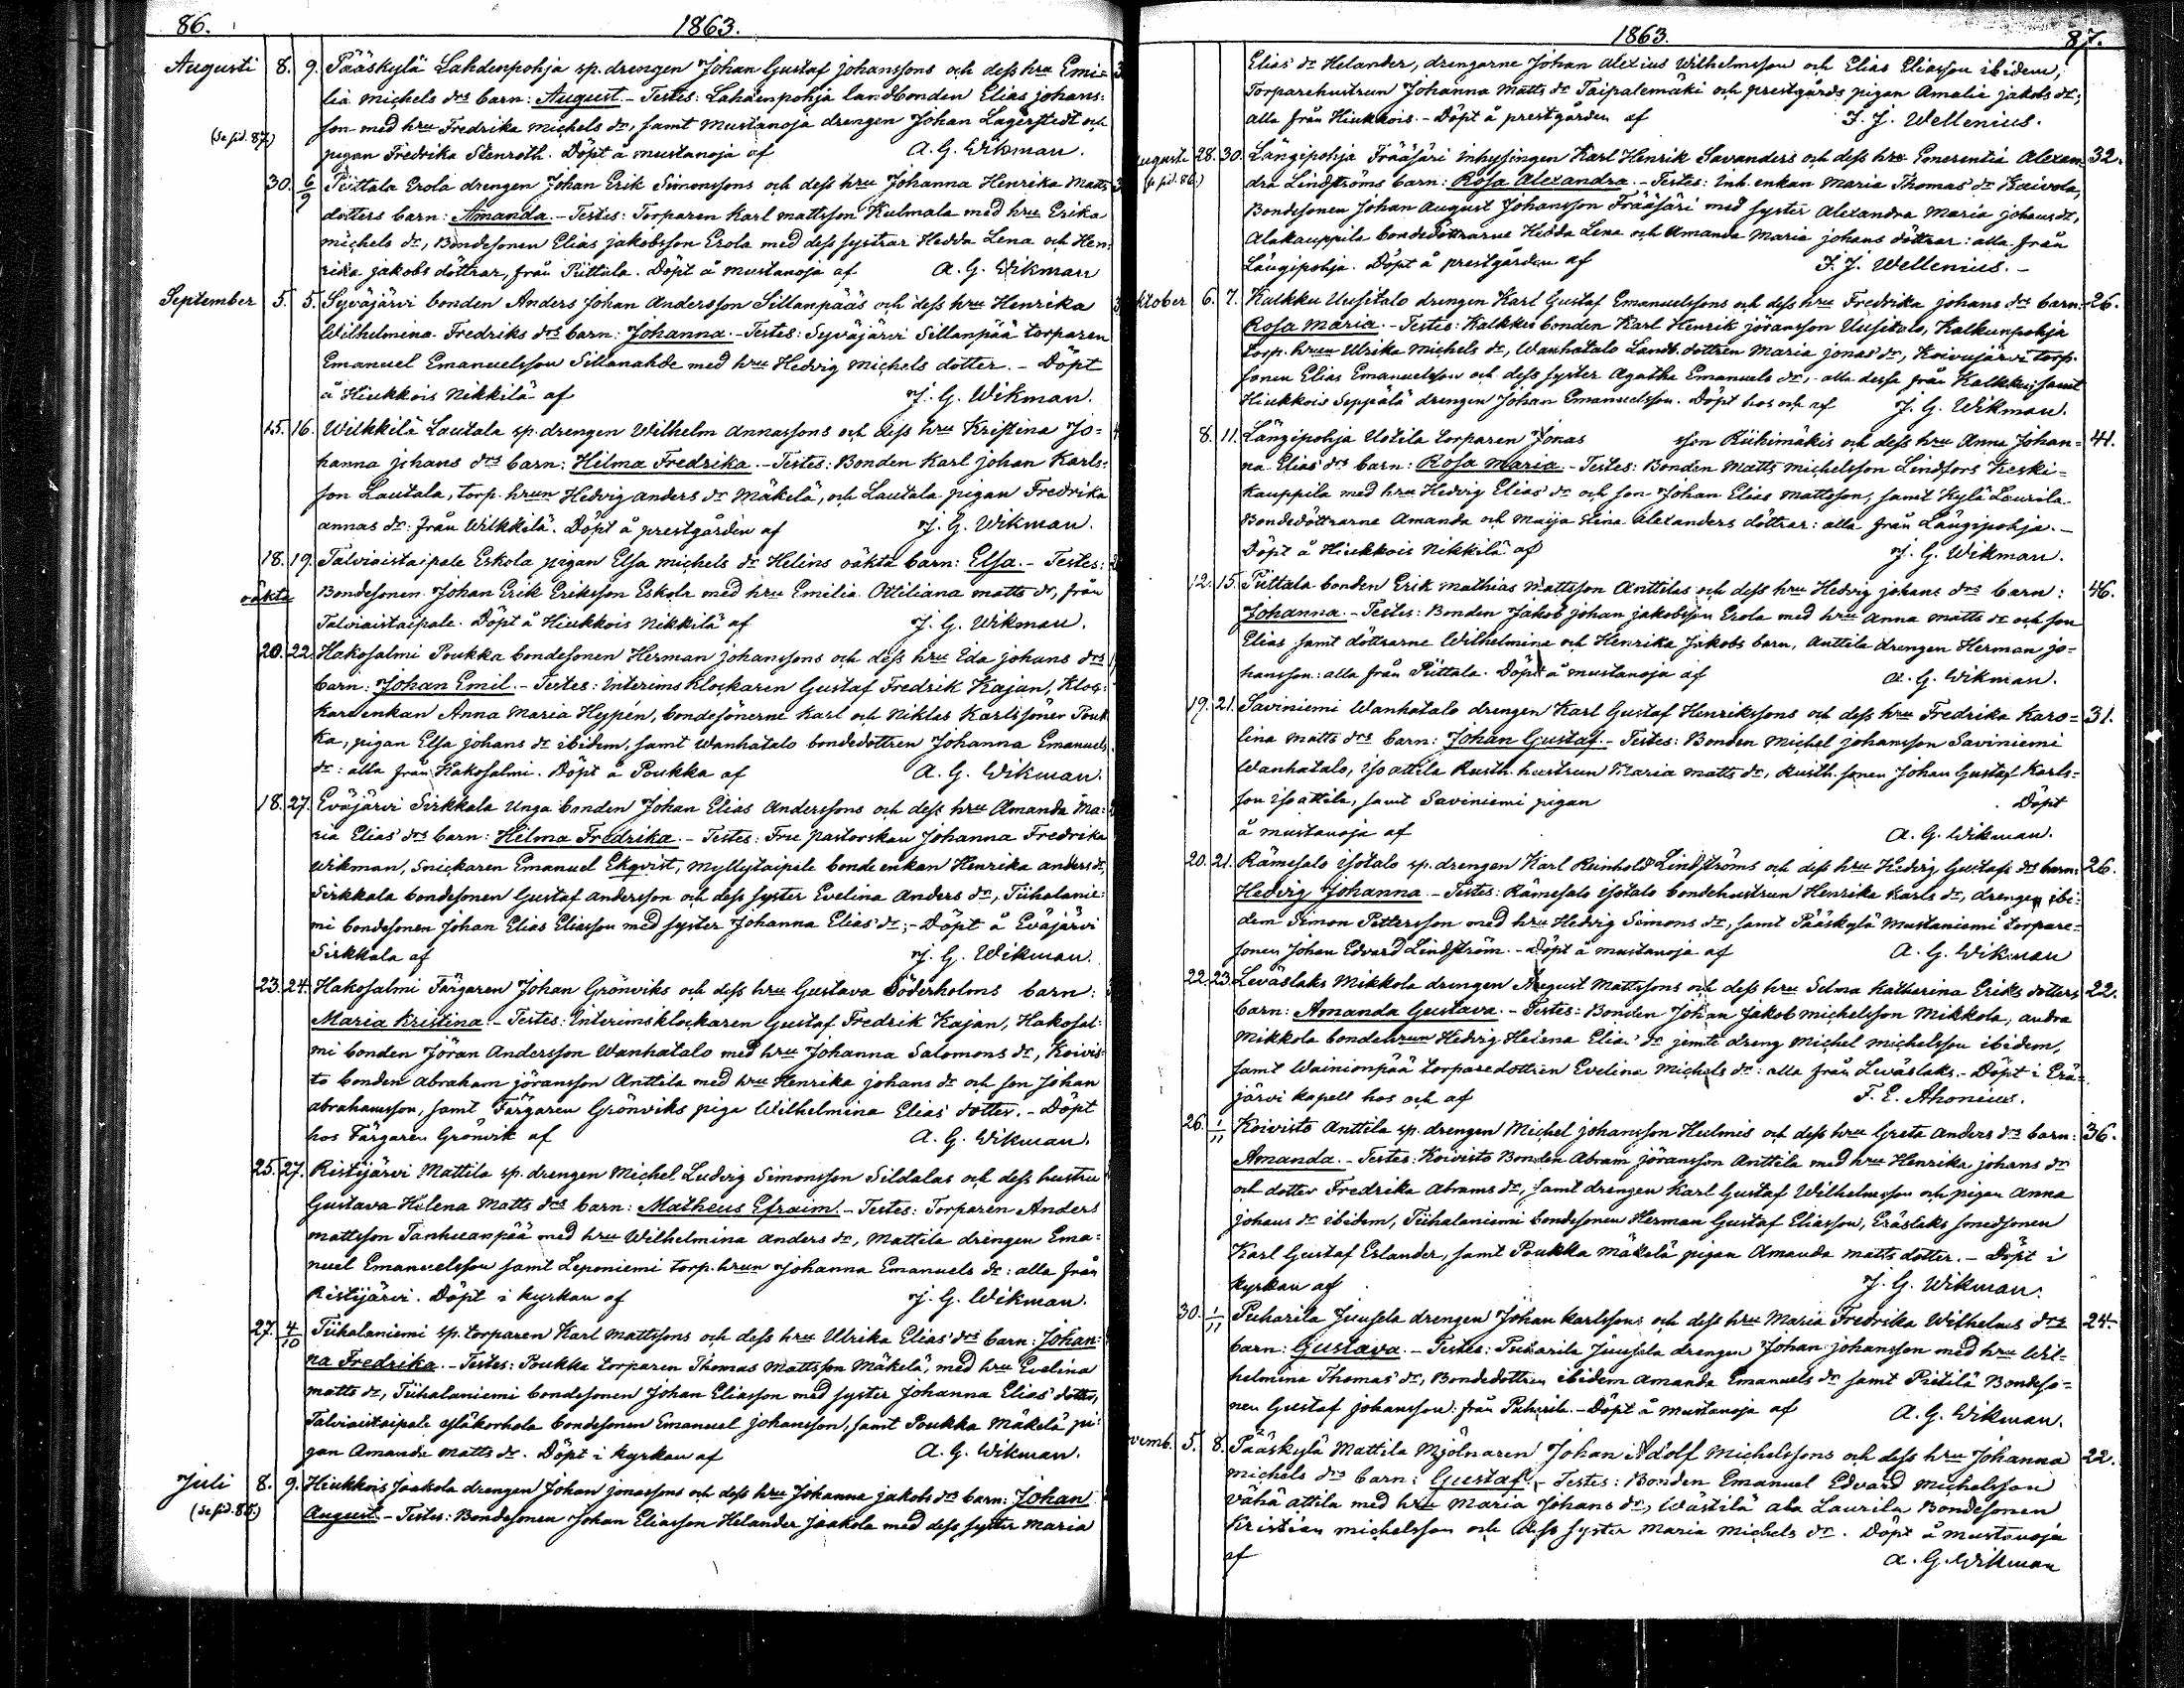 86. 1863.
Augusti 8. 9. Pääskylä Lahdenpohja sp. drengen Johan Gustaf Johanssons och dess hru Emi=
lia Michels drs barn: August. - Testes: Lahdenpohja landbonden Elias Johans=
son med hru Fredrika Michels dr, samt Mustanoja drengen Johan Lagerstedt och
(Se sid. 87.) pigan Fredrika Stenroth. Döpt å Mustanoja af A. G. Wikman.
30. 6/9 Pittala Erola drengen Johan Erik Simonssons och dess hru Johanna Henrika Matts
dotters barn: Amanda. - Testes: Torparen Karl Mattsson Kulmala med hru Erika
Michels dr, Bondesonen Elias Jakobsson Erola med dess systrar Hedda Lena och Hen=
rika Jakobs döttrar, från Pittala. Döpt å Mustanoja af A. G. Wikman
September 5. 5. Syväjärvi bonden Anders Johan Andersson Sillanpääs och dess hru Henrika
Wilhelmina Fredriks drs barn: Johanna. - Testes: Syväjärvi Sillanpää torparen
Emanuel Emanuelsson Sillanahde med hru Hedvig Michels dotter. - Döpt
å Hiukkois Nikkilä af J. G. Wikman.
15. 16. Wilkkilä Lautala sp. drengen Wilhelm Annassons och dess hru Kristina Jo=
hanna Johans drs barn: Hilma Fredrika. - Testes: Bonden Karl Johan Karls=
son Lautala, torp. hrun Hedvig Anders dr Mäkelä, och Lautala pigan Fredrika
Annas dr: från Wilkkilä. Döpt å prestgården af J. G. Wikman.
18. 19. Talviaistaipale Eskola pigan Elsa Michels dr Helins oäkta barn: Elsa. - Testes:
oäkta Bondesonen Johan Erik Eriksson Eskola med hru Emilia Ottiliana Matts dr, från
Talviaistaipale. Döpt å Hiukkois Nikkilä af J. G. Wikman.
20. 22. Hakosalmi Poukka bondesonen Herman Johanssons och dess hru Eda Johans drs
barn: Johan Emil. - Testes: Interims Klockaren Gustaf Fredrik Kajan, Kloc=
kareenkan Anna Maria Hypén, bondesönerne Karl och Niklas Karlssöner Pouk
ka, pigan Elsa Johans dr ibidem, samt Wanhatalo bondedottren Johanna Emanuels
dr: alla från Hakosalmi. Döpt å Poukka af A. G. Wikman.
18. 27. Eväjärvi Sirkkala unga bonden Johan Elias Anderssons och dess hru Amanda Ma=
ria Elias drs barn: Hilma Fredrika. - Testes: Fru Pastorskan Johanna Fredrika
Wikman, Snickaren Emanuel Ekqvist, Myllytaipale bonde enkan Henrika Anders dr,
Sirkkala bondesonen Gustaf Andersson och dess syster Evelina Anders dr, Tiihalanie=
mi bondesonen Johan Elias Eliasson med syster Johanna Elias dr; - Döpt å Eväjärvi
Sirkkala af J. G. Wikman.
23. 24. Hakosalmi Färgaren Johan Grönviks och dess hru Gustava Söderholms barn:
Maria Kristina. - Testes: Interimsklockaren Gustaf Fredrik Kajan, Hakosal=
mi bonden Jöran Andersson Wanhatalo med hru Johanna Salomons dr, Koivis=
to bonden Abraham Jöransson Anttila med hru Henrika Johans dr och son Johan
Abrahamsson, samt Färgaren Grönviks piga Wilhelmina Elias dotter. - Döpt
hos Färgaren Grönvik af A. G. Wikman.
25. 27. Ristijärvi Mattila sp. drengen Michel Ludvig Simonsson Sildalas och dess hustru
Gustava Helena Matts drs barn: Matheus Efraim. - Testes: Torparen Anders
Mattsson Tanhuanpää med hru Wilhelmina Anders dr, Mattila drengen Ema=
nuel Emanuelsson samt Leponiemi torp. hrun Johanna Emanuels dr: alla från
Ristijärvi. Döpt i kyrkan af J. G. Wikman.
27. 4/10 Tiihalaniemi sp. torparen Karl Mattssons och dess hru Ulrika Elias drs barn: Johan=
na Fredrika. - Testes: Poukka torparen Thomas Mattsson Mäkelä, med hru Evelina
Matts dr, Tiihalaniemi bondesonen Johan Eliasson med syster Johanna Elias dotter,
Talviaistaipale Yläkorhola bondesonen Emanuel Johansson, samt Poukka Mäkelä pi=
gan Amanda Matts dr. Döpt i kyrkan af A. G. Wikman.
Juli 8. 9. Hiukkois Jaakola drengen Johan Jonassons och dess hru Johanna Jakobs drs barn: Johan
(Se sid. 85.) August. - Testes: Bondesonen Johan Eliasson Helander Jaakola med dess syster Maria
1863. 87.
Elias dr Helander, drengarne Johan Alexius Wilhelmsson och Elias Eliasson ibidem,
Torparehustrun Johanna Matts dr Taipalemäki och prestgårds pigan Amalia Jakobs dr;
alla från Hiukkois. - Döpt å prestgården af F. J. Wellenius.
Augusti 28. 30. Längipohja Frääjäri inhysingen Karl Henrik Savanders och dess hru Emerentia Alexan 32.
(se sid. 86.) dra Lindströms barn: Rosa Alexandra. - Testes: Inh. enkan Maria Thomas dr Kaivola,
Bondesonen Johan August Johansson Frääjäri med syster Alexandra Maria Johans dr,
Alakauppila bondedöttrarne Hedda Lena och Amanda Maria Johans döttrar: alla från
Längipohja. Döpt å prestgården af F. J. Wellenius. -
ktober 6. 7. Kalkku Uusitalo drengen Karl Gustaf Emanuelssons och dess hru Fredrika Johans drs barn: 26.
Rosa Maria. - Testes: Kalkku bonden Karl Henrik Jöransson Uusitalo, Kalkunpohja
torp. hrun Ulrika Michels dr, Wanhatalo Landb. dottren Maria Jonas dr, Koivujärvi torp.
sonen Elias Emanuelsson och dess syster Agatha Emanuels dr, - alla dessa från Kalkku, samt
Hiukkois Seppälä drengen Johan Emanuelsson. Döpt hos och af J. G. Wikman.
8. 11. Längipohja Uotila torparen Jonas sson Riihimäkis och dess hru Anna Johan= 41.
na Elias drs barn: Rosa Maria. - Testes: Bonden Matts Michelsson Lindfors Keski=
kauppila med hru Hedvig Elias dr och son Johan Elias Mattsson, samt Kylä Laurila
Bondedöttrarne Amanda och Maija Stina Alexanders döttrar: alla från Längipohja. -
Döpt å Hiukkois Nikkilä af J. G. Wikman.
12. 15. Pittala bonden Erik Mathias Mattsson Anttilas och dess hru Hedvig Johans drs barn: 46.
Johanna. - Testes: Bonden Jakob Johan Jakobsson Erola med hru Anna Matts dr och son
Elias samt döttrarne Wilhelmina och Henrika Jakobs barn, Anttila drengen Herman Jo=
hansson: alla från Pittala. Döpt å Mustanoja af A. G. Wikman.
19. 21. Saviniemi Wanhatalo drengen Karl Gustaf Henrikssons och dess hru Fredrika Karo= 31.
lina Matts drs barn: Johan Gustaf. - Testes: Bonden Michel Johansson Saviniemi
Wanhatalo, Iso attila Rusth. hustrun Maria Matts dr, Rusth. sonen Johan Gustaf Karls=
son Isoattila, samt Saviniemi pigan Döpt
å Mustanoja af A. G. Wikman.
20. 21. Rämesalo Isotalo sp. drengen Karl Reinhold Lindströms och dess hru Hedvig Gustafs drs barn: 26.
Hedvig Johanna. - Testes: Rämesalo Isotalo bondehustrun Henrika Karls dr, drengen ibi=
dem Simon Pettersson med hru Hedvig Simons dr, samt Pääskylä Mustaniemi torpare=
sonen Johan Edvard Lindström. - Döpt å Mustanoja af A. G. Wikman
22. 23. Leväslaks Mikkola drengen August Mattssons och dess hru Selma Katharina Eriks dotters 22.
barn: Amanda Gustava. - Testes: Bonden Johan Jakob Michelsson Mikkola, andra
Mikkola bondehrun Hedvig Helena Elias dr jemte dreng Michel Michelsson ibidem,
samt Wainionpää torparedottren Evelina Michels dr: alla från Leväslaks. - Döpt i Erä=
järvi kapell hos och af F. E. Ahonius.
26. 1/11 Koivisto Anttila sp. drengen Michel Johansson Hulmis och dess hru Greta Anders drs barn: 36.
Amanda. - Testes: Koivisto Bonden Abram Jöransson Anttila med hru Henrika Johans dr
och dotter Fredrika Abrams dr, samt drengen Karl Gustaf Wilhelmsson och pigan Anna
Johans dr ibidem, Tiihalaniemi bondesonen Herman Gustaf Eliasson, Eräslaks smedsonen
Karl Gustaf Eslander, samt Poukka Mäkelä pigan Amanda Matts dotter. - Döpt i
kyrkan af J. G. Wikman.
30. 1/11 Puharila Juusela drengen Johan Karlssons och dess hru Maria Fredrika Wilhelms drs 24.
barn: Gustava. - Testes: Puharila Juusela drengen Johan Johansson med hru Wil=
helmina Thomas dr, Bondedottren ibidem Amanda Emanuels dr samt Pietilä Bondeso=
nen Gustaf Johansson: från Puharila. - Döpt å Mustanoja af A. G. Wikman.
vemb. 5. 8. Pääskylä Mattila Mjölnaren Johan Adolf Michelssons och dess hru Johanna 22.
Michels drs barn: Gustaf. - Testes: Bonden Emanuel Edvard Michelsson
Vähä attila med hru Maria Johans dr, Wästilä ala Laurila Bondesonen
Kristian Michelsson och dess syster Maria Michels dr. Döpt å Mustanoja
af A. G. Wikman